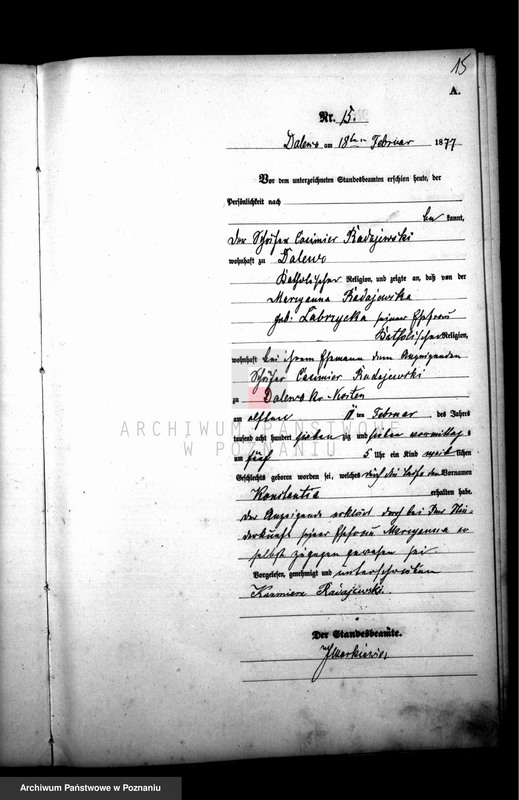 15
A.
Nr. 15.
Dalewo am 18ten Februar 1877
Vor dem unterzeichneten Standesbeamten erschien heute, der
Persönlichkeit nach
be kannt,
der Schäfer Casimier Radajewski
wohnhaft zu Dalewo
Katholischer Religion, und zeigte an, daß von der
Maryanna Radajewska
geb: Labrzycka seiner Ehefrau
Katholischer Religion,
wohnhaft bei ihrem Ehemann dem Anzeigenden
Schäfer Casimier Radajewski
zu Dalewo Kr. Kosten
am elften 11 ten Februar des Jahres
tausend acht hundert sieben zig und sieben vormittags
um fünf 5 Uhr ein Kind weib lichen
Geschlechts geboren worden sei, welches den Vornamen
Konstantia erhalten habe.
der Anzeigende erklärt daß bei der Nie-
derkunft seiner Ehefrau Maryanna er
selbst zugegen gewesen sei
Vorgelesen, genehmigt und unterschrieben
Kazmierz Radajewski.
Der Standesbeamte.
JMarkiewicz
ARCHIWUM PAŃSTWOWE
W POZNANIU
Archiwum Państwowe w Poznaniu